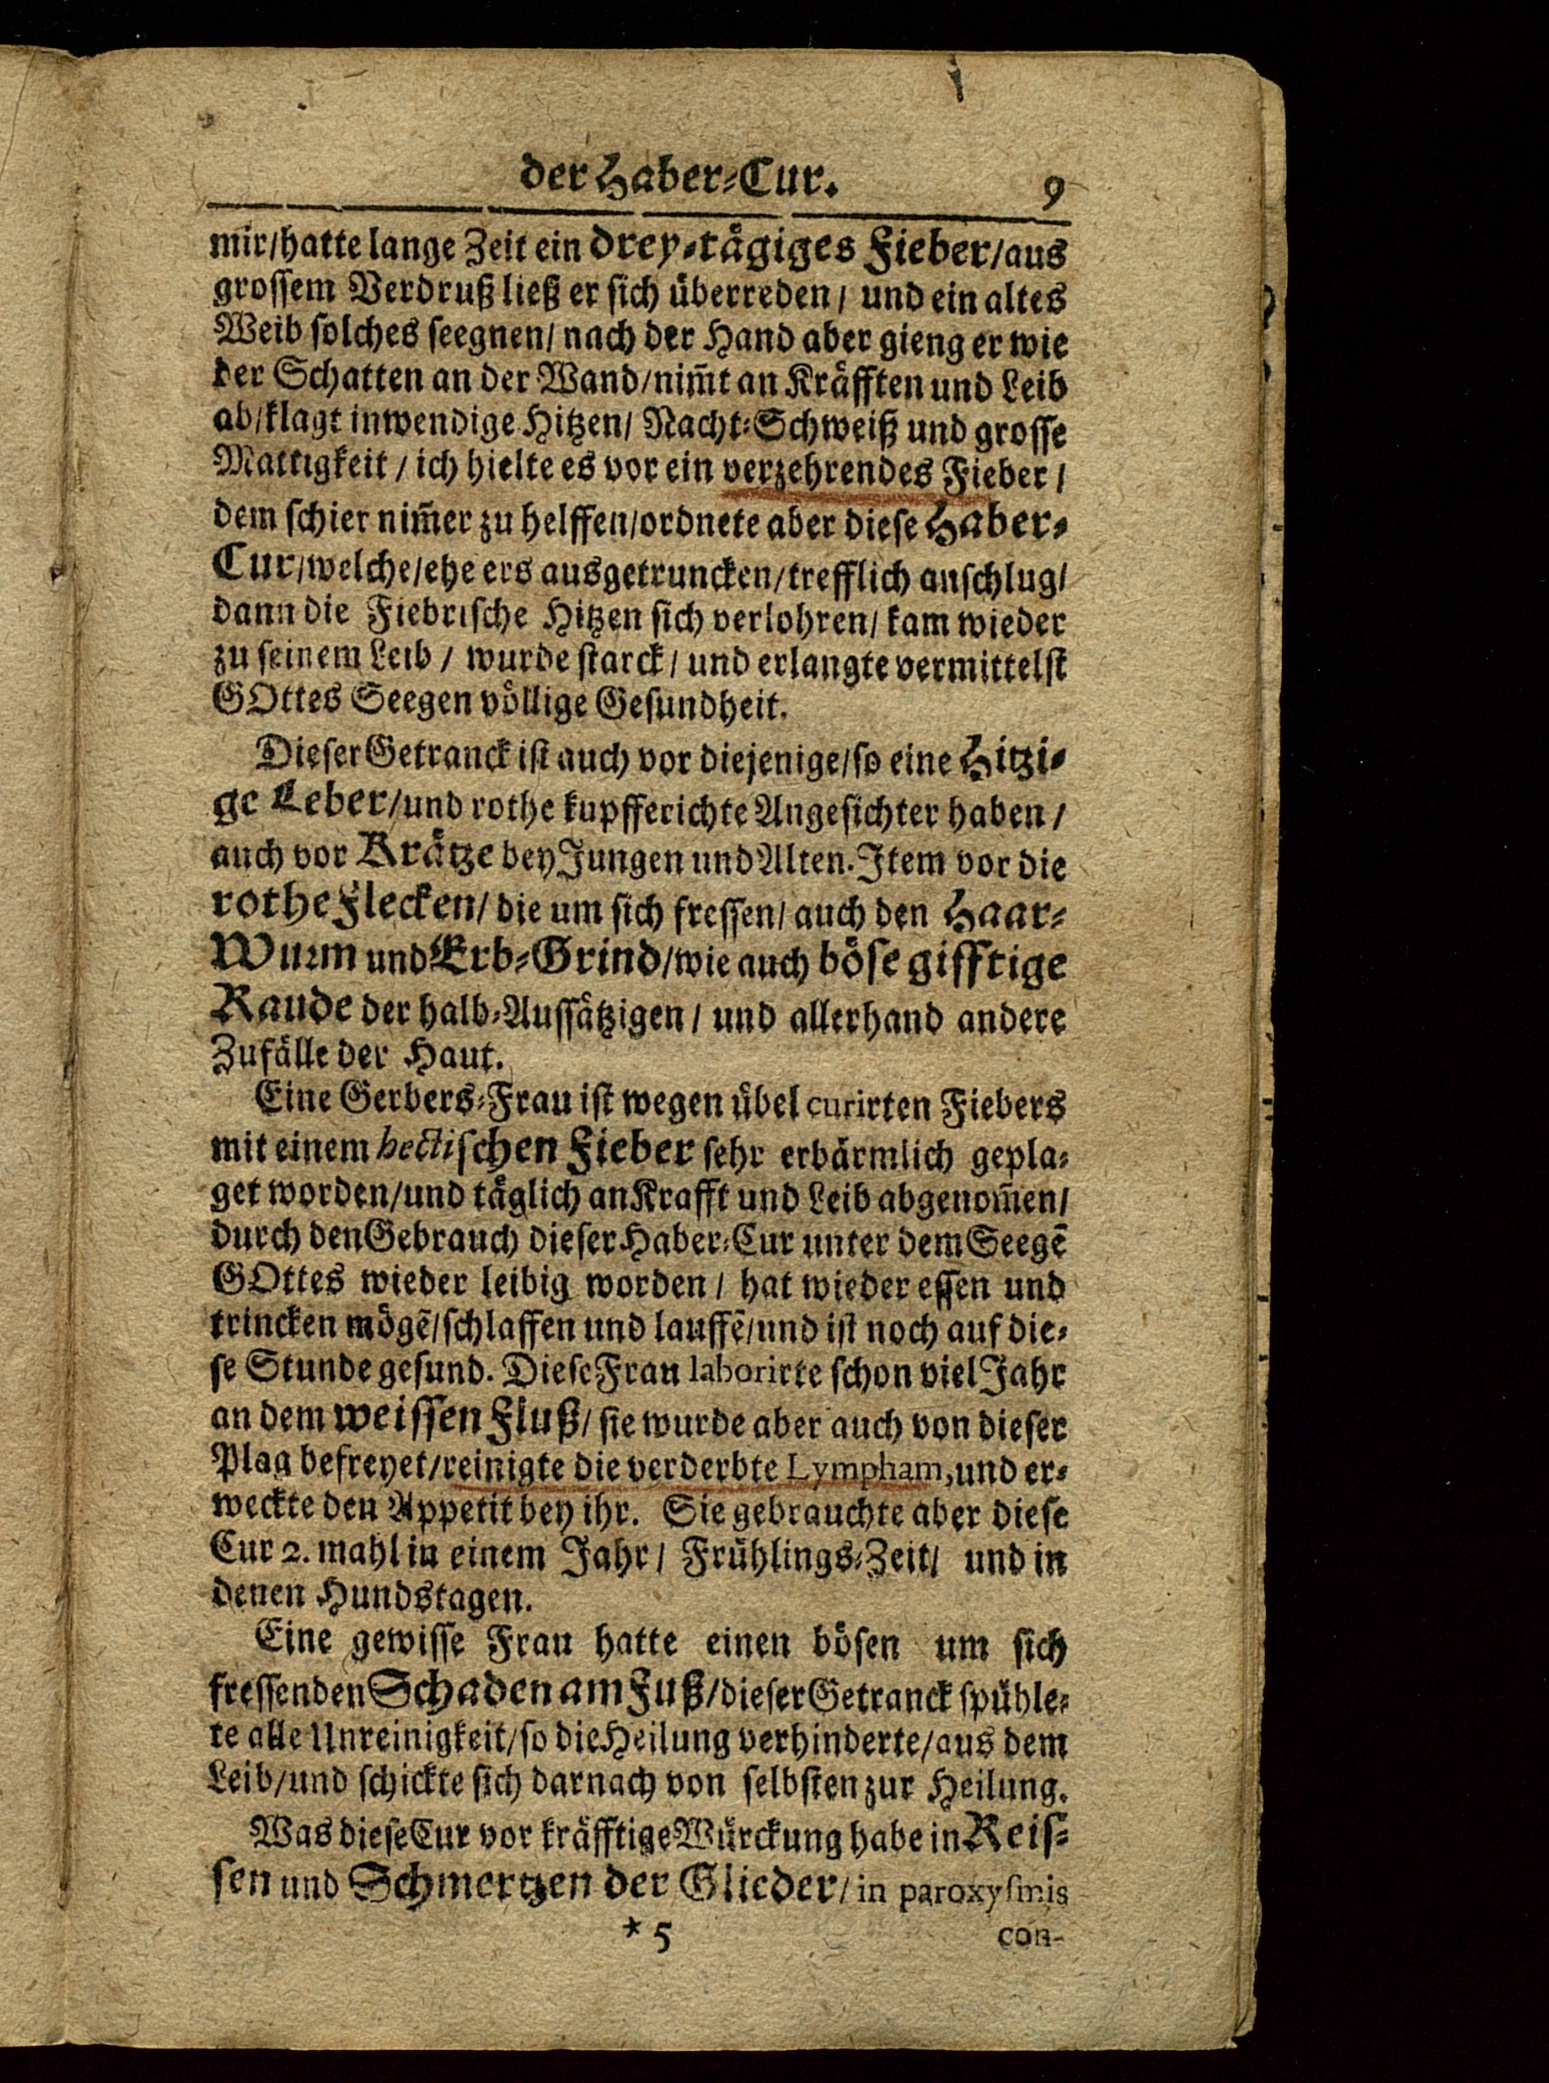 der Haber-Cur. 9
mir/hatte lange Zeit ein drey-tägiges Fieber/aus
grossem Verdruß ließ er sich überreden/ und ein altes
Weib solches seegnen/ nach der Hand aber gieng er wie
der Schatten an der Wand/nim̄t an Kräfften und Leib
ab/klagt inwendige Hitzen/ Nacht-Schweiß und grosse
Mattigkeit/ ich hielte es vor ein verzehrendes Fieber/
dem schier nim̄er zu helffen/ordnete aber diese Haber-
Cur/welche/ehe ers ausgetruncken/trefflich anschlug/
dann die Fiebrische Hitzen sich verlohren/ kam wieder
zu seinem Leib/ wurde starck/ und erlangte vermittelst
GOttes Seegen völlige Gesundheit.
Dieser Getranck ist auch vor diejenige/so eine Hitzi-
ge Leber/und rothe kupfferichte Angesichter haben/
auch vor Krätze bey Jungen und Alten. Item vor die
rothe Flecken/ die um sich fressen/ auch den Haar-
Wurm und Erb-Grind/wie auch böse gifftige
Raude der halb-Aussätzigen/ und allerhand andere
Zufälle der Haut.
Eine Gerbers-Frau ist wegen übel curirten Fiebers
mit einem hectischen Fieber sehr erbärmlich gepla-
get worden/und täglich an Krafft und Leib abgenom̄en/
durch den Gebrauch dieser Haber-Cur unter dem Seegē
GOttes wieder leibig worden/ hat wieder essen und
trincken mögē/schlaffen und lauffē/und ist noch auf die-
se Stunde gesund. Diese Frau laborirte schon viel Jahr
an dem weissen Fluß/ sie wurde aber auch von dieser
Plag befreyet/reinigte die verderbte Lympham, und er-
weckte den Appetit bey ihr. Sie gebrauchte aber diese
Cur 2. mahl in einem Jahr/ Frühlings-Zeit/ und in
denen Hundstagen.
Eine gewisse Frau hatte einen bösen um sich
fressenden Schaden am Fuß/dieser Getranck spühle-
te alle Unreinigkeit/so die Heilung verhinderte/aus dem
Leib/und schickte sich darnach von selbsten zur Heilung.
Was diese Cur vor kräfftige Würckung habe in Reis-
sen und Schmertzen der Glieder/ in paroxysmis
*5 con-